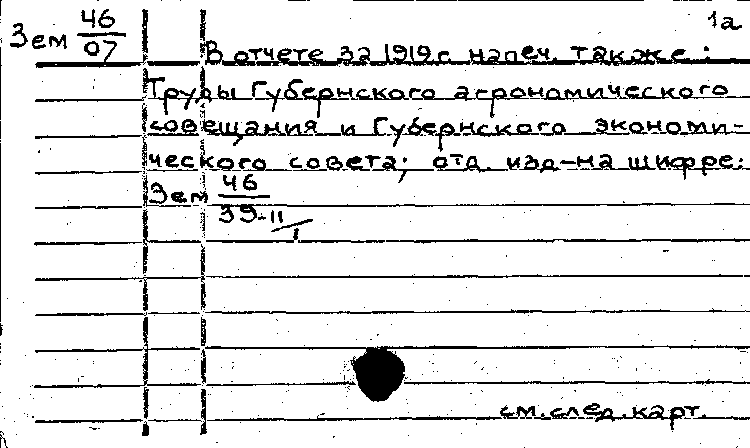 1а
Зем 46/07
В отчете за 1919 г. напеч. также:
Труды Губернского агрономического
совещания и Губернского экономи-
ческого совета; отд. изд-на шифре:
Зем 46/39-11/1
см. след. карт.